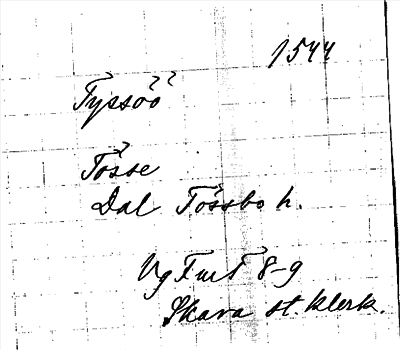 1544
Tyssöö
Tösse
Dal Tössbo h.
Vg FmT 8-9
Skara st. klerk.